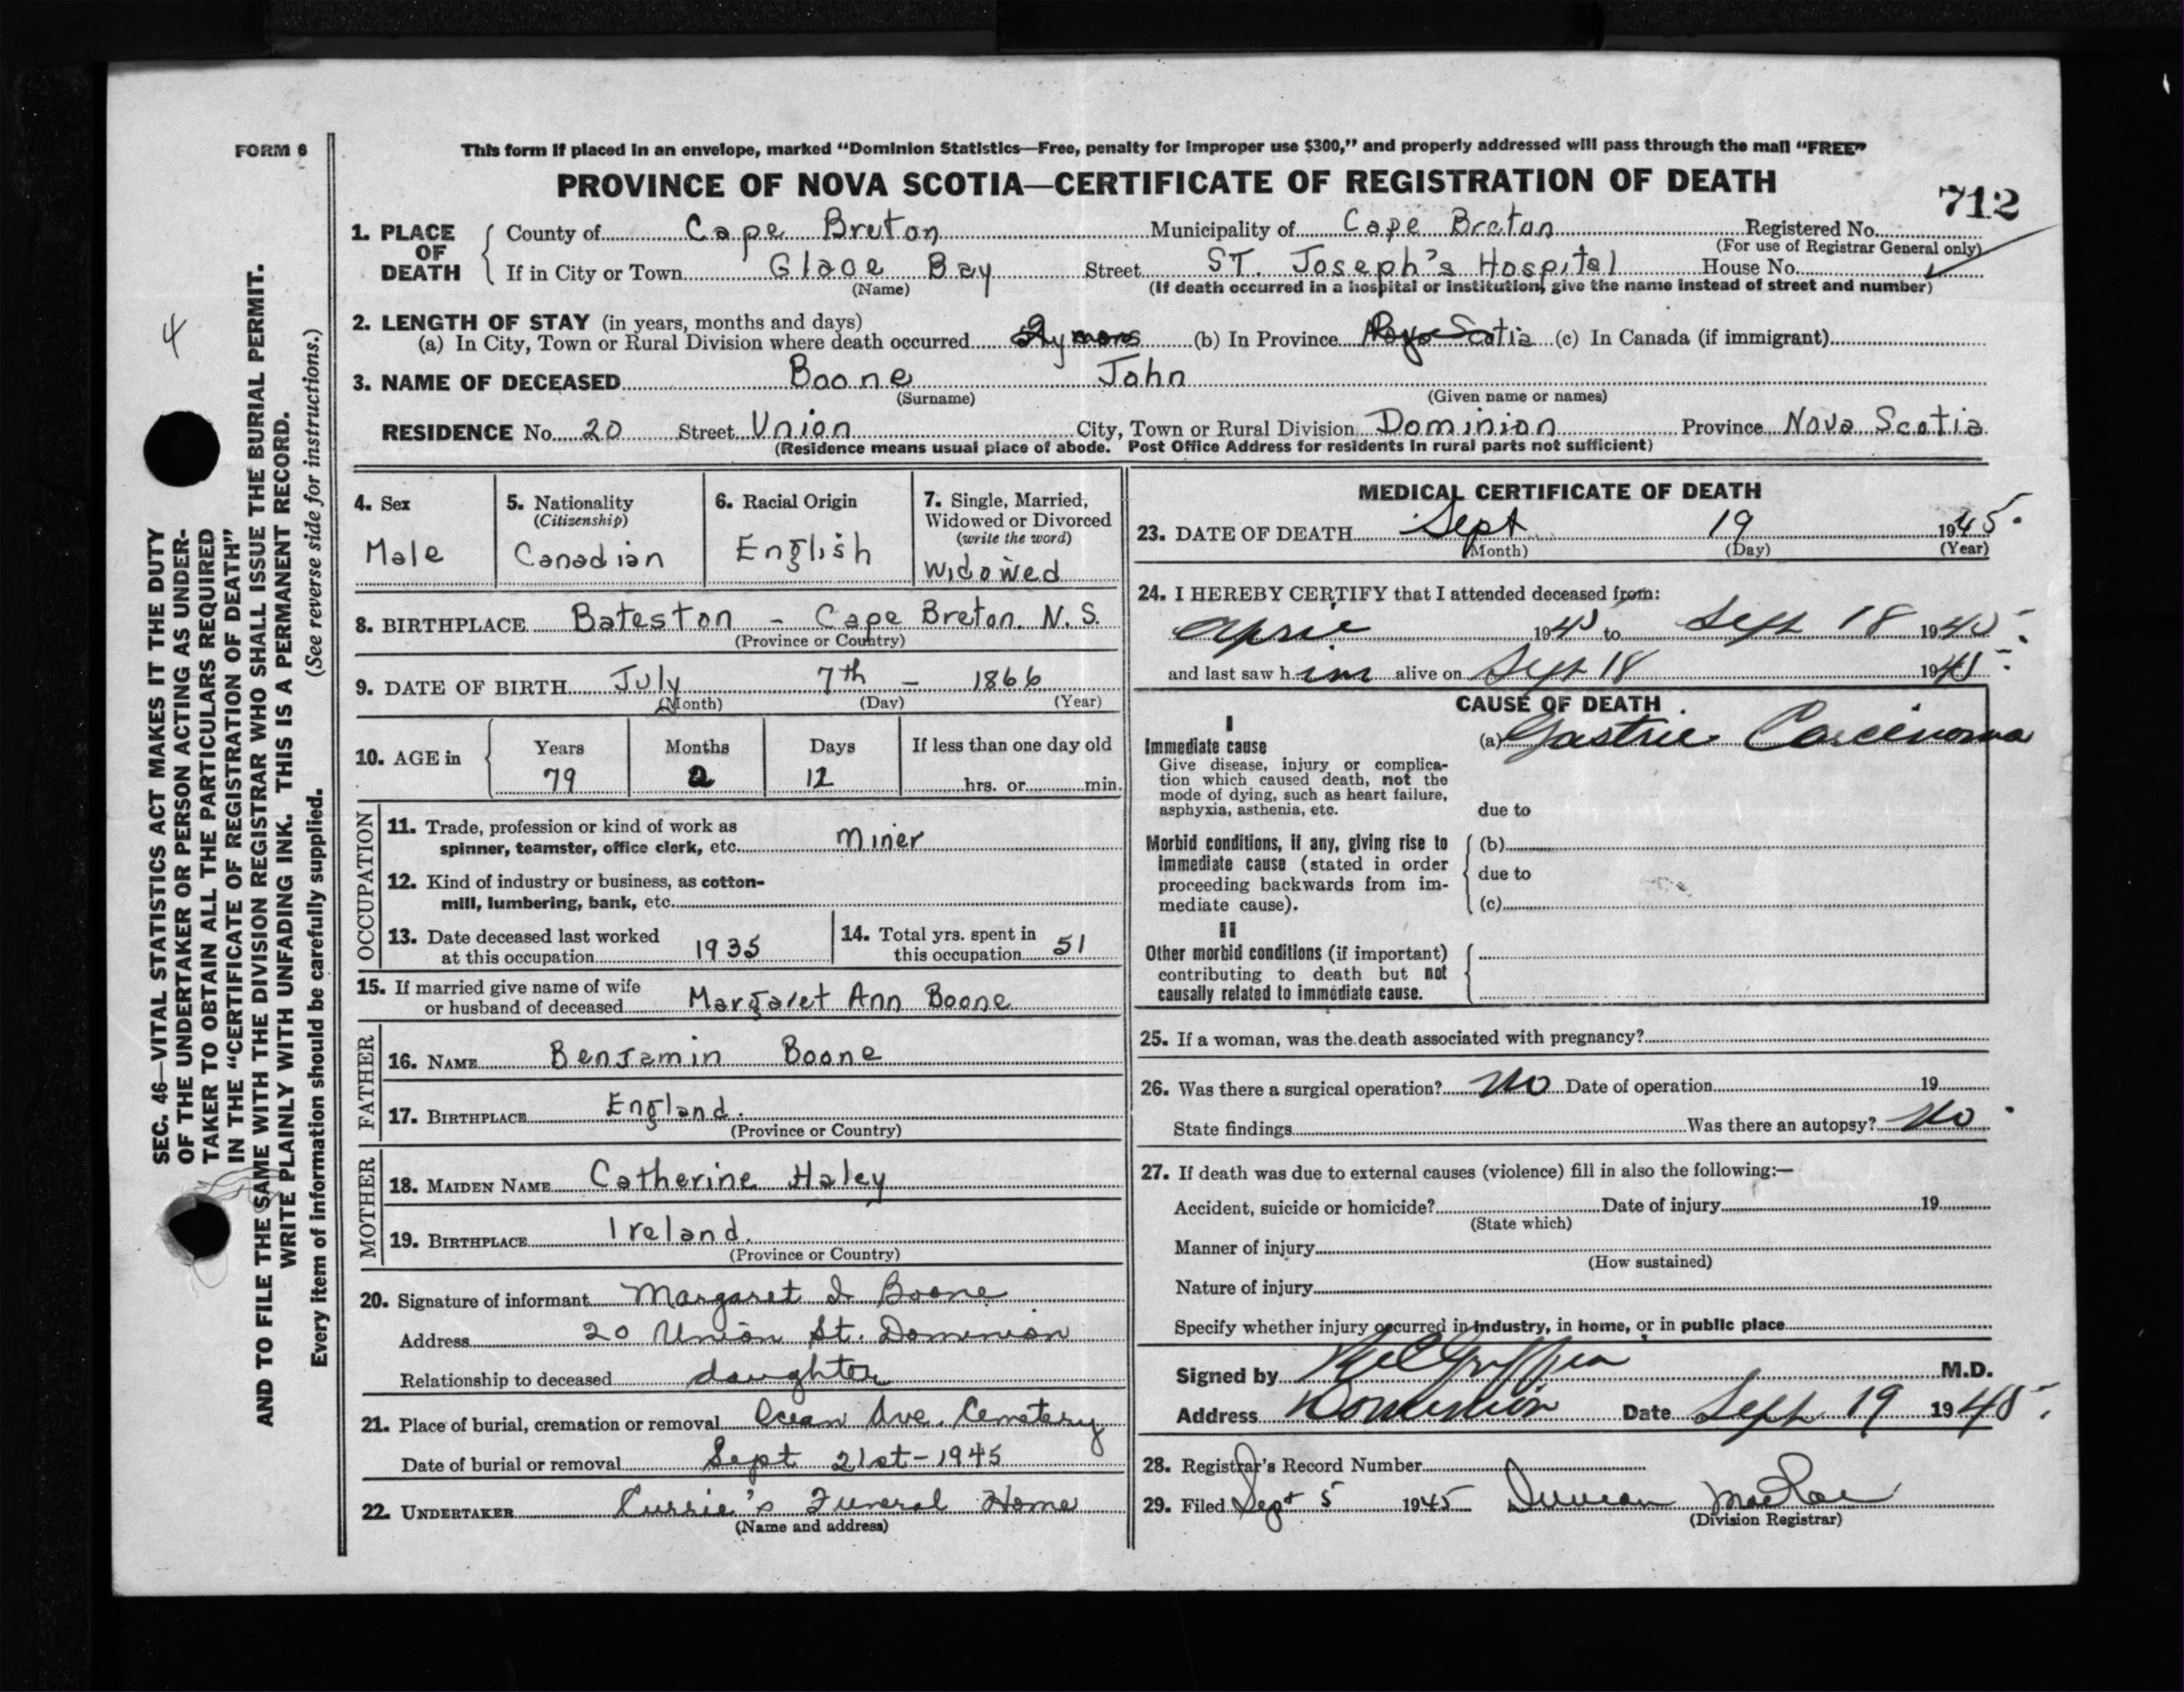 FORM 6
This form if placed in an envelope, marked “Dominion Statistics—Free, penalty for improper use $300,” and properly addressed will pass through the mail “FREE”
PROVINCE OF NOVA SCOTIA—CERTIFICATE OF REGISTRATION OF DEATH
712
1. PLACE OF DEATH
County of Cape Breton Municipality of Cape Breton Registered No.
(For use of Registrar General only)
If in City or Town Glace Bay Street ST. Joseph's Hospital House No.
(Name) (If death occurred in a hospital or institution, give the name instead of street and number)
2. LENGTH OF STAY (in years, months and days)
(a) In City, Town or Rural Division where death occurred (b) In Province Nova Scotia (c) In Canada (if immigrant)
3. NAME OF DECEASED Boone John
(Surname) (Given name or names)
RESIDENCE No. 20 Street Union City, Town or Rural Division Dominion Province Nova Scotia
(Residence means usual place of abode. Post Office Address for residents in rural parts not sufficient)
4. Sex
Male
5. Nationality
(Citizenship)
Canadian
6. Racial Origin
English
7. Single, Married,
Widowed or Divorced
(write the word)
Widowed
8. BIRTHPLACE Bateston - Cape Breton. N. S.
(Province or Country)
9. DATE OF BIRTH July 7th - 1866
(Month) (Day) (Year)
10. AGE in
Years Months Days If less than one day old
79 2 12 hrs. or min.
OCCUPATION
11. Trade, profession or kind of work as
spinner, teamster, office clerk, etc. Miner
12. Kind of industry or business, as cotton-
mill, lumbering, bank, etc.
13. Date deceased last worked
at this occupation 1935
14. Total yrs. spent in
this occupation 51
15. If married give name of wife
or husband of deceased Margaret Ann Boone
FATHER
16. NAME Benjamin Boone
17. BIRTHPLACE England.
(Province or Country)
MOTHER
18. MAIDEN NAME Catherine Haley
19. BIRTHPLACE Ireland.
(Province or Country)
20. Signature of informant Margaret I Boone
Address 20 Union St. Dominion
Relationship to deceased daughter
21. Place of burial, cremation or removal Ocean Ave. Cemetery
Date of burial or removal Sept 21st-1945
22. UNDERTAKER Currie's Funeral Home
(Name and address)
MEDICAL CERTIFICATE OF DEATH
23. DATE OF DEATH Sept 19 1945.
(Month) (Day) (Year)
24. I HEREBY CERTIFY that I attended deceased from:
April 1945 to Sept 18 1945.
and last saw him alive on Sept 18 1945.
CAUSE OF DEATH
I
Immediate cause
Give disease, injury or complica-
tion which caused death, not the
mode of dying, such as heart failure,
asphyxia, asthenia, etc.
(a) Gastric Carcinoma
due to
Morbid conditions, if any, giving rise to
immediate cause (stated in order
proceeding backwards from im-
mediate cause).
(b)
due to
(c)
II
Other morbid conditions (if important)
contributing to death but not
causally related to immediate cause.
25. If a woman, was the death associated with pregnancy?
26. Was there a surgical operation? No Date of operation 19
State findings Was there an autopsy? No.
27. If death was due to external causes (violence) fill in also the following:—
Accident, suicide or homicide? Date of injury 19
(State which)
Manner of injury
(How sustained)
Nature of injury
Specify whether injury occurred in industry, in home, or in public place
Signed by M.D.
Address Dominion Date Sept 19 1945.
28. Registrar's Record Number
29. Filed Sept 5 1945 Duncan MacRae
(Division Registrar)
4
SEC. 46—VITAL STATISTICS ACT MAKES IT THE DUTY
OF THE UNDERTAKER OR PERSON ACTING AS UNDER-
TAKER TO OBTAIN ALL THE PARTICULARS REQUIRED
IN THE “CERTIFICATE OF REGISTRATION OF DEATH”
AND TO FILE THE SAME WITH THE DIVISION REGISTRAR WHO SHALL ISSUE THE BURIAL PERMIT.
WRITE PLAINLY WITH UNFADING INK. THIS IS A PERMANENT RECORD.
Every item of information should be carefully supplied. (See reverse side for instructions.)